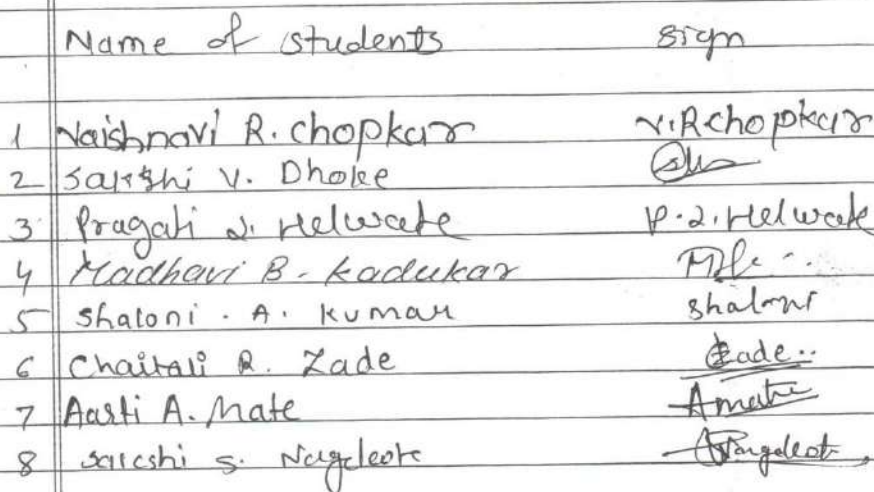 Name of students sign
1 Vaishnavi R. Chopkar V.R chopkar
2 Sakshi V. Dhoke
3 Pragati D. Helwate P.D. Helwate
4 Madhavi B. Kadukar
5 Shaloni . A. Kumar Shaloni
6 Chaitali R. Zade Zade
7 Aarti A. Mate Amate
8 Sakshi S. Nagdeote Nagdeote